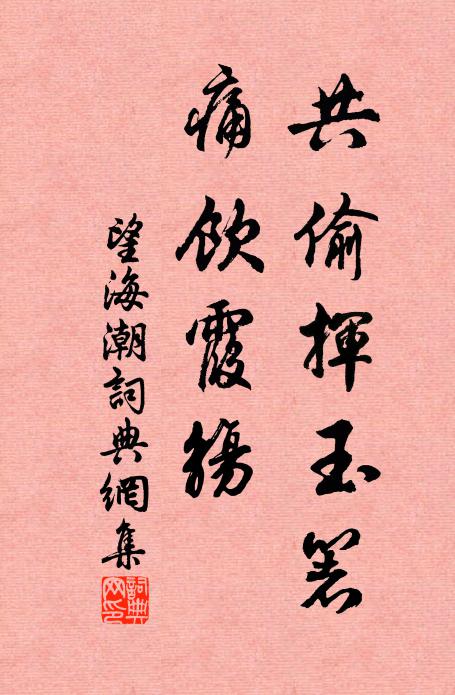 共偷揮玉箸
痛飲霞觴
望海潮詞典網集
詞典网印